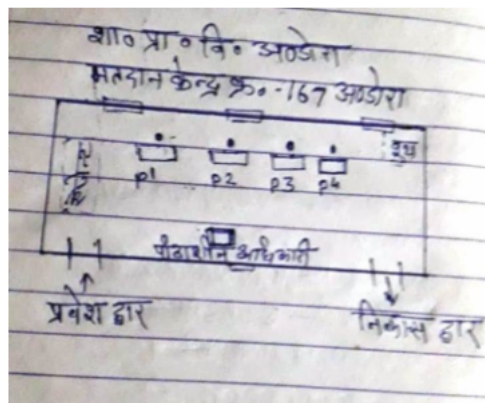 शा० प्रा० वि० अण्डोरा
मतदान केन्द्र क्र०-167 अण्डोरा
बूथ
P1 P2 P3 P4
पीठासीन अधिकारी
प्रवेश द्वार
निकास द्वार